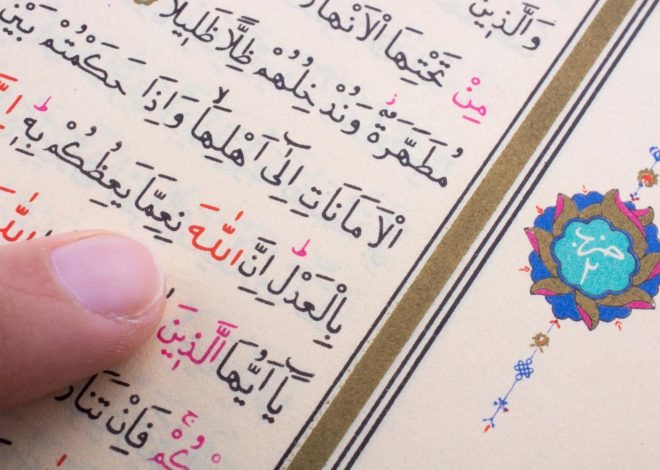 وَالَّذِينَ
مِنْ تَحْتِهَا الْاَنْهَا
مُطَهَّرَةٌ وَنُدْخِلُهُمْ ظِلًّا ظَلِيلًا
الْاَمَانَاتِ اِلٰٓى اَهْلِهَاۙ وَاِذَا حَكَمْتُمْ بَيْنَ
بِالْعَدْلِۜ اِنَّ اللّٰهَ نِعِمَّا يَعِظُكُمْ بِهِۜ
يَٓا اَيُّهَا الَّذِينَ
كُمْۚ فَاِنْ تَنَا
حزب
٢